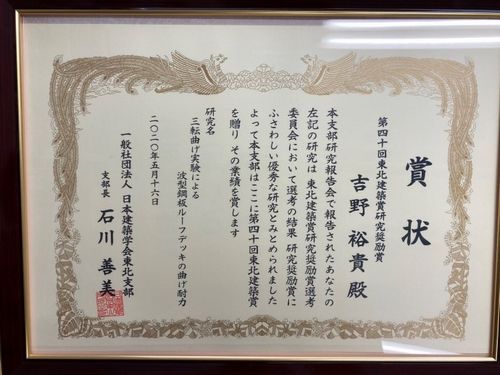 賞状
第四十回東北建築賞研究奨励賞
吉野裕貴 殿
本支部研究報告会で報告されたあなたの
左記の研究は 東北建築賞研究奨励賞選考
委員会において選考の結果 研究奨励賞に
ふさわしい優秀な研究とみとめられました
よって本支部はここに第四十回東北建築賞
を贈り その業績を賞します
研究名
三転曲げ実験による
波型鋼板ルーフデッキの曲げ耐力
二〇二〇年五月十六日
一般社団法人 日本建築学会東北支部
支部長 石川善美